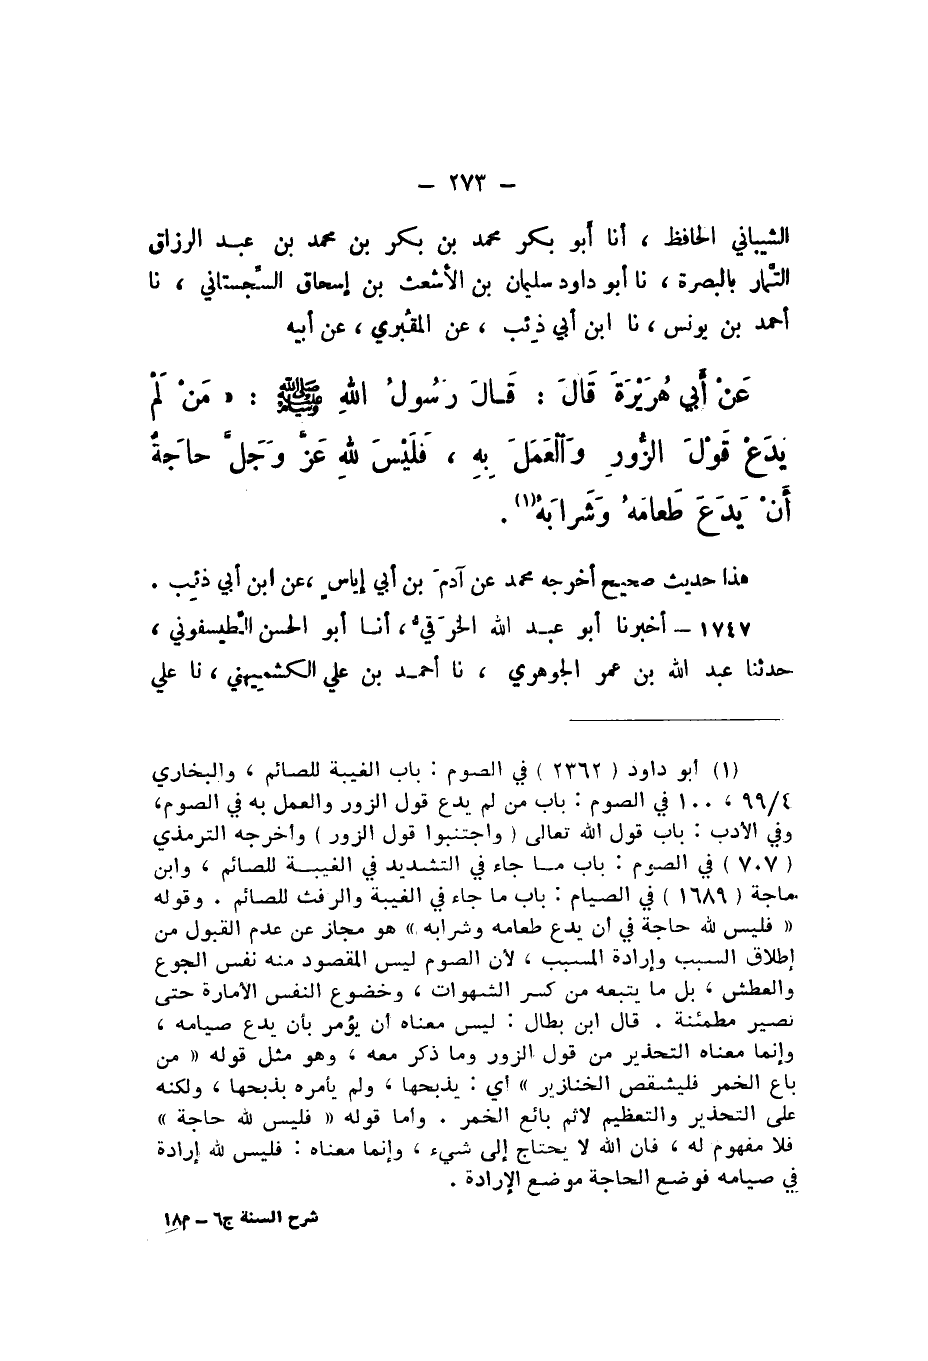 – ٢٧٣ –
الشيباني الحافظ ، أنا أبو بكر محمد بن بكر بن محمد بن عبد الرزاق
التَّمار بالبصرة ، نا أبو داود سليمان بن الأشعث بن إسحاق السِّجستاني ، نا
أحمد بن يونس ، نا ابن أبي ذئب ، عن المقبُري ، عن أبيه
عَنْ أَبِي هُرَيْرَةَ قَالَ : قَالَ رَسُولُ اللهِ ﷺ : « مَنْ لَمْ
يَدَعْ قَوْلَ الزُّورِ وَالْعَمَلَ بِهِ ، فَلَيْسَ لِلهِ عَزَّ وَجَلَّ حاجَةٌ
أَنْ يَدَعَ طَعامَهُ وَشَرابَهُ(١) .
هذا حديث صحيح أخرجه محمد عن آدمَ بن أبي إياسٍ ،عن ابن أبي ذئب .
١٧٤٧ – أخبرنا أبو عبد الله الخرَقيُّ ، أنا أبو الحسن الطَّيسفوني ،
حدثنا عبد الله بن عمر الجوهري ، نا أحمد بن علي الكشميهني ، نا علي
(١) أبو داود ( ٢٣٦٢ ) في الصوم : باب الغيبة للصائم ، والبخاري
٩٩/٤ ، ١٠٠ في الصوم : باب من لم يدع قول الزور والعمل به في الصوم،
وفي الأدب : باب قول الله تعالى ( واجتنبوا قول الزور ) وأخرجه الترمذي
( ٧٠٧ ) في الصوم : باب ما جاء في التشديد في الغيبة للصائم ، وابن
ماجة ( ١٦٨٩ ) في الصيام : باب ما جاء في الغيبة والرفث للصائم . وقوله
« فليس لله حاجة في أن يدع طعامه وشرابه » هو مجاز عن عدم القبول من
إطلاق السبب وإرادة المسبب ، لأن الصوم ليس المقصود منه نفس الجوع
والعطش ، بل ما يتبعه من كسر الشهوات ، وخضوع النفس الأمارة حتى
تصير مطمئنة . قال ابن بطال : ليس معناه أن يؤمر بأن يدع صيامه ،
وإنما معناه التحذير من قول الزور وما ذكر معه ، وهو مثل قوله « من
باع الخمر فليشقص الخنازير » أي : يذبحها ، ولم يأمره بذبحها ، ولكنه
على التحذير والتعظيم لاثم بائع الخمر . وأما قوله « فليس لله حاجة »
فلا مفهوم له ، فان الله لا يحتاج إلى شيء ، وإنما معناه : فليس لله إرادة
في صيامه فوضع الحاجة موضع الإرادة .
شرح السنة ج٦ – م١٨